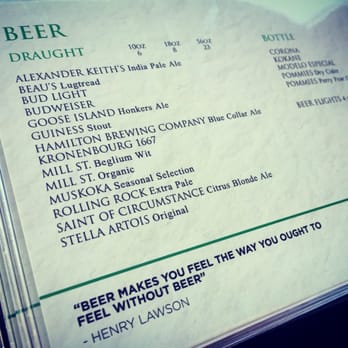 BEER
DRAUGHT 10OZ 18OZ 56OZ
6 8 23
ALEXANDER KEITH'S India Pale Ale
BEAU'S Lugtread
BUD LIGHT
BUDWEISER
GOOSE ISLAND Honkers Ale
GUINESS Stout
HAMILTON BREWING COMPANY Blue Collar Ale
KRONENBOURG 1667
MILL ST. Beglium Wit
MILL ST. Organic
MUSKOKA Seasonal Selection
ROLLING ROCK Extra Pale
SAINT OF CIRCUMSTANCE Citrus Blonde Ale
STELLA ARTOIS Original
BOTTLE
CORONA
KOKANE
MODELO ESPECIAL
POMMIES Dry Cider
POMMIES Perry Pear
BEER FLIGHTS
"BEER MAKES YOU FEEL THE WAY YOU OUGHT TO
FEEL WITHOUT BEER"
- HENRY LAWSON